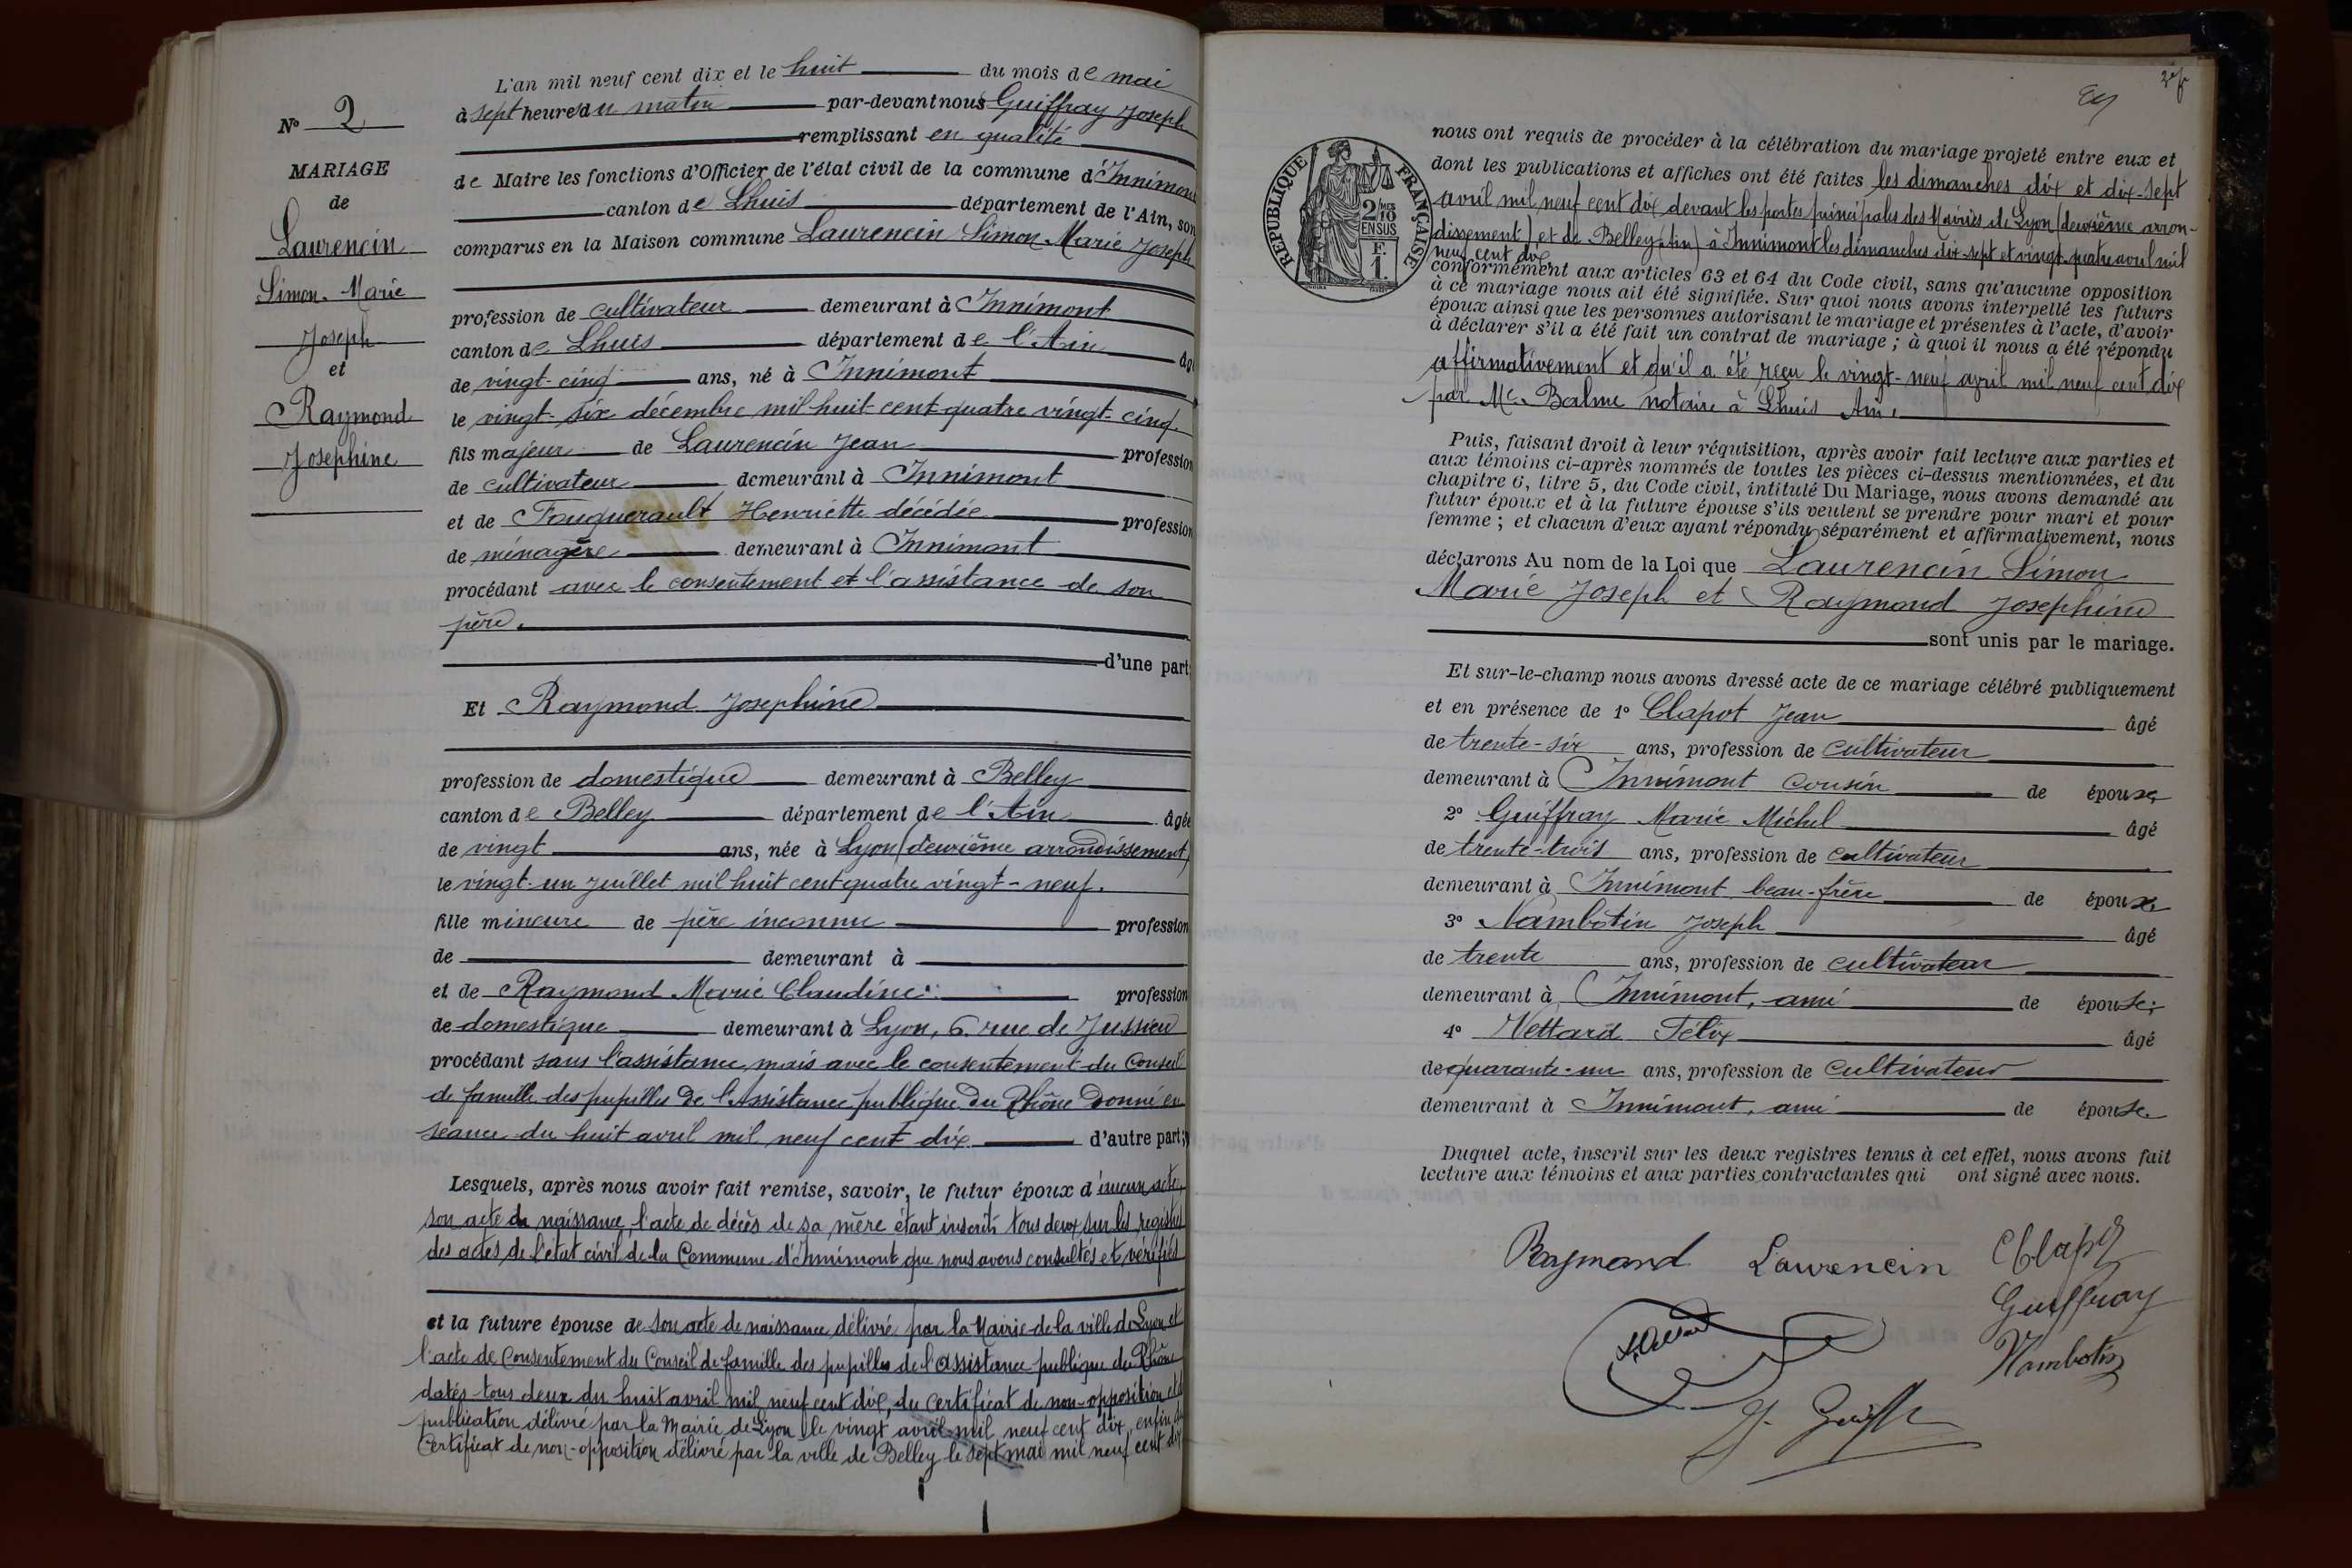 N° 2
MARIAGE
de
Laurencin
Simon Marie
Joseph
et
Raymond
Josephine
L'an mil neuf cent dix et le huit du mois de mai
à sept heures du matin par-devant nous Guiffray Joseph
remplissant en qualité
de Maire les fonctions d'Officier de l'état civil de la commune d'Innimont
canton de Lhuis département de l'Ain, son
comparus en la Maison commune Laurencin Simon Marie Joseph
profession de cultivateur demeurant à Innimont
canton de Lhuis département de l'Ain âgé
de vingt-cinq ans, né à Innimont
le vingt-six décembre mil huit cent quatre vingt-cinq.
fils majeur de Laurencin Jean profession
de cultivateur demeurant à Innimont
et de Fouquerault Henriette décédée profession
de ménagère demeurant à Innimont
procédant avec le consentement et l'assistance de son
père.
d'une part;
Et Raymond Josephine
profession de domestique demeurant à Belley
canton de Belley département de l'Ain âgée
de vingt ans, née à Lyon (deuxième arrondissement)
le vingt-un juillet mil huit cent quatre vingt-neuf.
fille mineure de père inconnu profession
de demeurant à
et de Raymond Marie Claudine profession
de domestique demeurant à Lyon, 6 rue de Jussieu
procédant sans l'assistance, mais avec le consentement du Conseil
de famille des pupilles de l'Assistance publique du Rhône donné en
séance du huit avril mil neuf cent dix d'autre part;
Lesquels, après nous avoir fait remise, savoir, le futur époux d'aucun acte,
son acte de naissance, l'acte de décès de sa mère étant inscrits tous deux sur les registres
des actes de l'état civil de la Commune d'Innimont que nous avons consultés et vérifiés
et la future épouse de son acte de naissance délivré par la Mairie de la ville de Lyon et
l'acte de consentement du Conseil de famille des pupilles de l'assistance publique du Rhône
datés tous deux du huit avril mil neuf cent dix, du certificat de non-opposition et de
publication délivré par la Mairie de Lyon le vingt avril mil neuf cent dix, enfin du
Certificat de non-opposition délivré par la ville de Belley le sept mai mil neuf cent dix
REPUBLIQUE FRANÇAISE
2 MES 10
EN SUS
F.
1.
nous ont requis de procéder à la célébration du mariage projeté entre eux et
dont les publications et affiches ont été faites les dimanches dix et dix-sept
avril mil neuf cent dix devant les portes principales des Mairies de Lyon (deuxième arron-
dissement) et de Belley (Ain) à Innimont les dimanches dix-sept et vingt-quatre avril mil
neuf cent dix
conformément aux articles 63 et 64 du Code civil, sans qu'aucune opposition
à ce mariage nous ait été signifiée. Sur quoi nous avons interpellé les futurs
époux ainsi que les personnes autorisant le mariage et présentes à l'acte, d'avoir
à déclarer s'il a été fait un contrat de mariage; à quoi il nous a été répondu
affirmativement et qu'il a été reçu le vingt-neuf avril mil neuf cent dix
par Me Balme notaire à Lhuis Ain.
Puis, faisant droit à leur réquisition, après avoir fait lecture aux parties et
aux témoins ci-après nommés de toutes les pièces ci-dessus mentionnées, et du
chapitre 6, titre 5, du Code civil, intitulé Du Mariage, nous avons demandé au
futur époux et à la future épouse s'ils veulent se prendre pour mari et pour
femme; et chacun d'eux ayant répondu séparément et affirmativement, nous
déclarons Au nom de la Loi que Laurencin Simon
Marie Joseph et Raymond Josephine
sont unis par le mariage.
Et sur-le-champ nous avons dressé acte de ce mariage célébré publiquement
et en présence de 1° Clapot Jean âgé
de trente-six ans, profession de cultivateur
demeurant à Innimont cousin de époux;
2° Guiffray Marie Michel âgé
de trente-trois ans, profession de cultivateur
demeurant à Innimont beau-frère de époux
3° Nambotin Joseph âgé
de trente ans, profession de cultivateur
demeurant à Innimont, ami de épouse;
4° Nettard Félix âgé
de quarante-un ans, profession de cultivateur
demeurant à Innimont, ami de épouse
Duquel acte, inscrit sur les deux registres tenus à cet effet, nous avons fait
lecture aux témoins et aux parties contractantes qui ont signé avec nous.
Raymond Laurencin Clapot
Guiffray
Nambotin